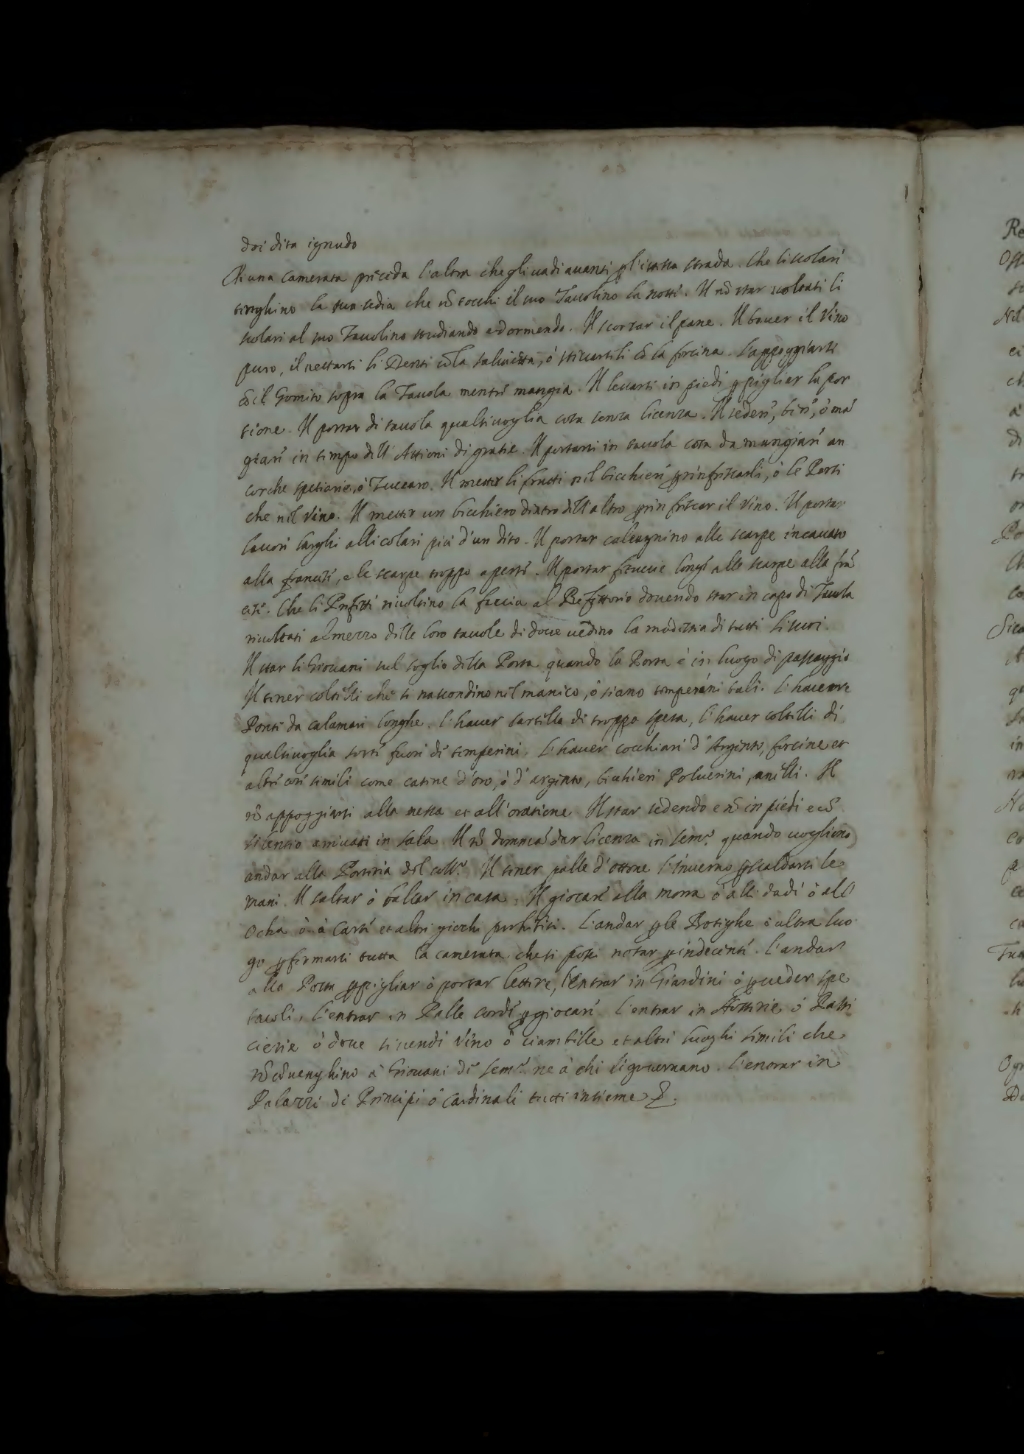 doi dita ignudo
Che una Camerata preceda l'altra che gli vadi avanti p l'istessa strada. Che li scolari
tenghino la sua sedia che nõ tocchi il suo Tavolino la notte. Il nõ star voltati li
scolari al suo Tavolino studiando e dormendo. Il scorzar il pane. Il bever il Vino
puro, il nettarsi li Denti cõ la salvietta, ò stuccarseli cõ la forcina. L'appoggiarsi
cõ il Gomito sopra la Tavola mentre mangia. Il levarsi in piedi p pigliar la por
tione. Il portar di tavola qualsivoglia cosa senza licenza. Il sedere, bere, ò ma
giare in tempo dell' Attioni di gratie. Il portarsi in tavola cosa da mangiare an
corche spetiarie, ò Zuccaro. Il metter li frutti nel bicchiere p rinfrescarli, ò le Persi
che nel Vino. Il metter un bicchiero dentro dell'altro p rin frescar il Vino. Il portar
lavori larghi alli colari più d'un dito. Il portar calcagnino alle scarpe incavato
alla francese, e le scarpe troppo aperte. Il portar fettucie longe alle scarpe alla frã
cese. Che li Prefetti rivoltino la faccia al Refettorio dovendo star in capo di Tavola
rivoltati al mezzo delle loro tavole di dove vedino la modestia di tutti li suoi.
Il star li Giovani sul soglio della Porta quando la Porta è in luogo di passaggio
Il tener coltelli che si nascondino nel manico, ò siano temperini tali. L'haver
Ponte da calamari longhe. L'haver cartelle di troppo spesa, l'haver coltelli di
qualsivoglia sorte fuori di temperini. L'haver cocchiari d'Argento, forcine et
altre cose simili come catene d'oro, ò d'argento, bichieri Polverini, anelli. Il
nõ appoggiarsi alla messa et all'oratione. Il star sedendo e nõ in piedi e cõ
silentio arrivati in sala. Il nõ dommãdar licenza in sem.º quando vogliono
andar alla Portaria del coll.º Il tener palle d'ottone l'Inverno p scaldarsi le
mani. Il saltar ò ballar in casa. Il giocare alla morra ò alli dadi ò all'
Ocha ò à Carte et altri giochi prohibiti. L'andar p le Botteghe ò altro luo
go p fermarsi tutta la camerata che si possi notar p indecente. L'andar
alla Posta p pigliar ò portar lettere, l'entrar in Giardini ò p veder spe
tacoli. L'entrar in Palle corde p giocare. L'entrar in Hosterie ò Pasti
cieria ò dove si vendi Vino ò ciambelle et altri luoghi simili che
nõ cõvenghino à Giovani di sem.º ne à chi li governano. L'entrar in
Palazzi di Principi ò Cardinali tutti insieme &.